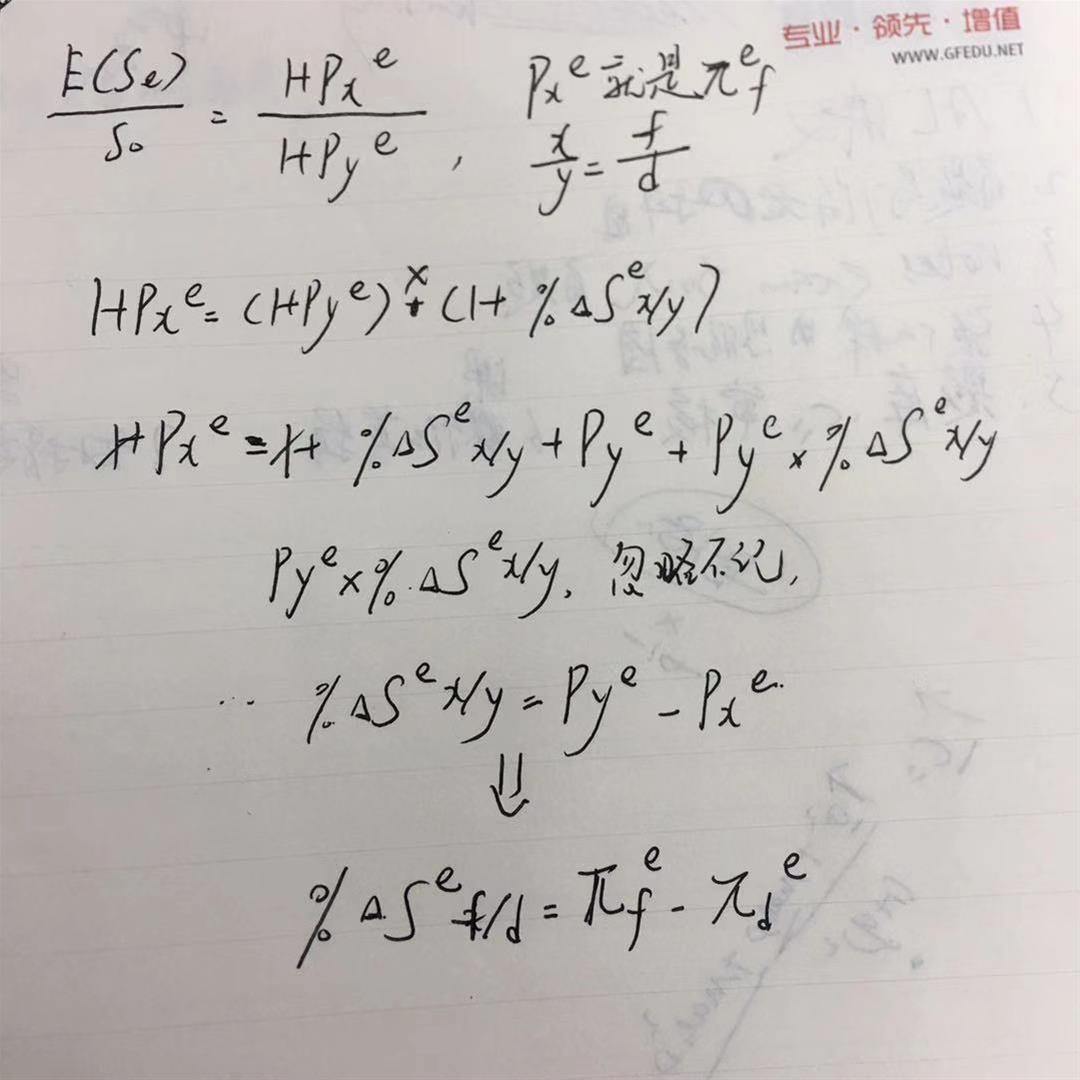 专业·领先·增值
WWW.GFEDU.NET
E(Se)/S0 = 1+Px^e/1+Py^e , Px^e 就是 π^e f
x/y = f/d
1+Px^e = (1+Py^e) × (1+ %ΔS^e x/y)
1+Px^e = 1+ %ΔS^e x/y + Py^e + Py^e × %ΔS^e x/y
Py^e × %ΔS^e x/y, 忽略不记,
∴ %ΔS^e x/y = Py^e - Px^e
⇓
%ΔS^e f/d = πf^e - πd^e